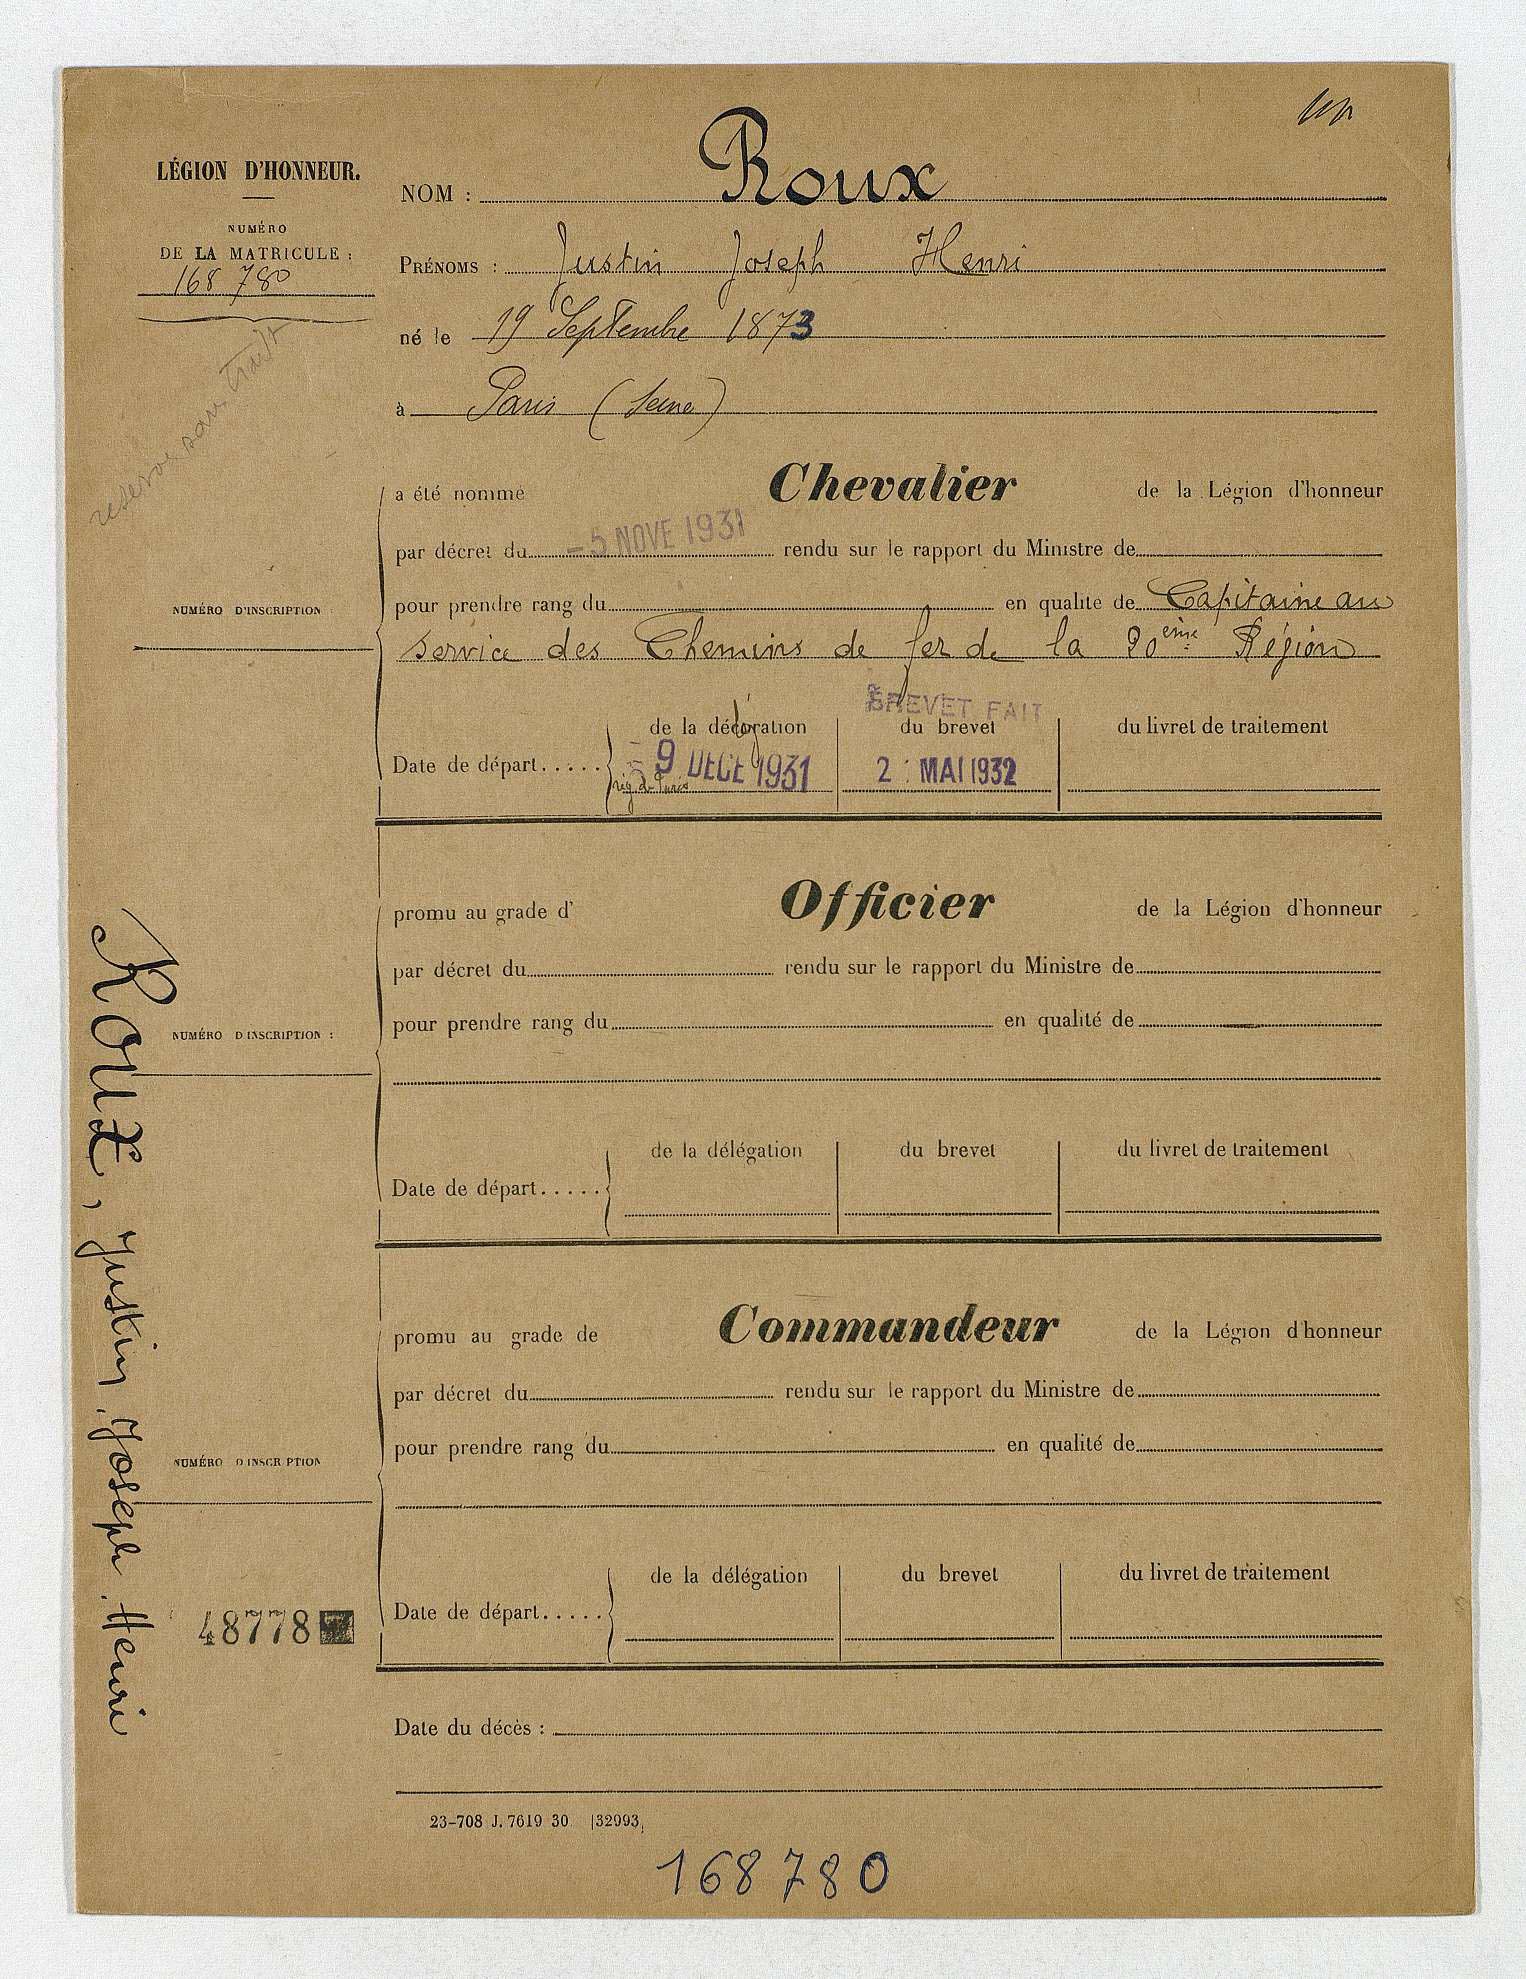 LÉGION D'HONNEUR.
NUMÉRO
DE LA MATRICULE :
168 780
reserve sans trait
NOM : Roux
PRÉNOMS : Justin Joseph Henri
né le 19 Septembre 1873
à Paris (Seine)
a été nommé Chevalier de la Légion d'honneur
par décret du -5 NOVE 1931 rendu sur le rapport du Ministre de
NUMÉRO D'INSCRIPTION :
pour prendre rang du en qualité de Capitaine au
service des Chemins de fer de la 20ème Région
BREVET FAIT
de la décoration du brevet du livret de traitement
Date de départ..... 9 DECE 1931 2 MAI 1932
rég. de Paris
promu au grade d' Officier de la Légion d'honneur
par décret du rendu sur le rapport du Ministre de
pour prendre rang du en qualité de
NUMÉRO D'INSCRIPTION :
de la délégation du brevet du livret de traitement
Date de départ.....
promu au grade de Commandeur de la Légion d'honneur
par décret du rendu sur le rapport du Ministre de
pour prendre rang du en qualité de
NUMÉRO D'INSCRIPTION
de la délégation du brevet du livret de traitement
Date de départ.....
48778
Date du décès :
23-708 J. 7619 30 [32993]
168780
Roux, Justin, Joseph, Henri